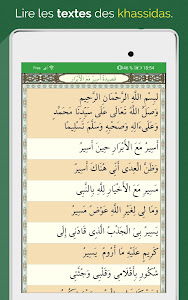 Lire les textes des khassidas.
18:54
قصيدة أسير مع الأبرار
بِسْمِ اللَّهِ الرَّحْمَانِ الرَّحِيمِ
وَصَلَّى اللَّهُ تَعَالَى عَلَى سَيِّدِنَا مُحَمَّدٍ
وَعَلَىٰ ءَالِهِ وَصَحْبِهِ وَسَلَّمَ تَسْلِيمًا
أَسِيرُ مَعَ الْأَبْرَارِ حِينَ أَسِيرُ
وَظَنَّ الْعِدَى أَنِّي هُنَاكَ أَسِيرُ
مَسِيرِي مَعَ الْأَخْيَارِ لِلَّهِ بِالنَّبِي
وَمَا لِي لِغَيْرِ اللَّهِ عَوْضُ مَسِيرُ
يَسِيرُ بِيَ الْجَذْبُ الَّذِي أَزَاحَ
كَرِيمٌ عَلَيْهِ مَا أَرُومُ يَسِيرُ
شَكُورٌ بِأَقْلَامِي وَقَلْبِي وَجُثَّتِي